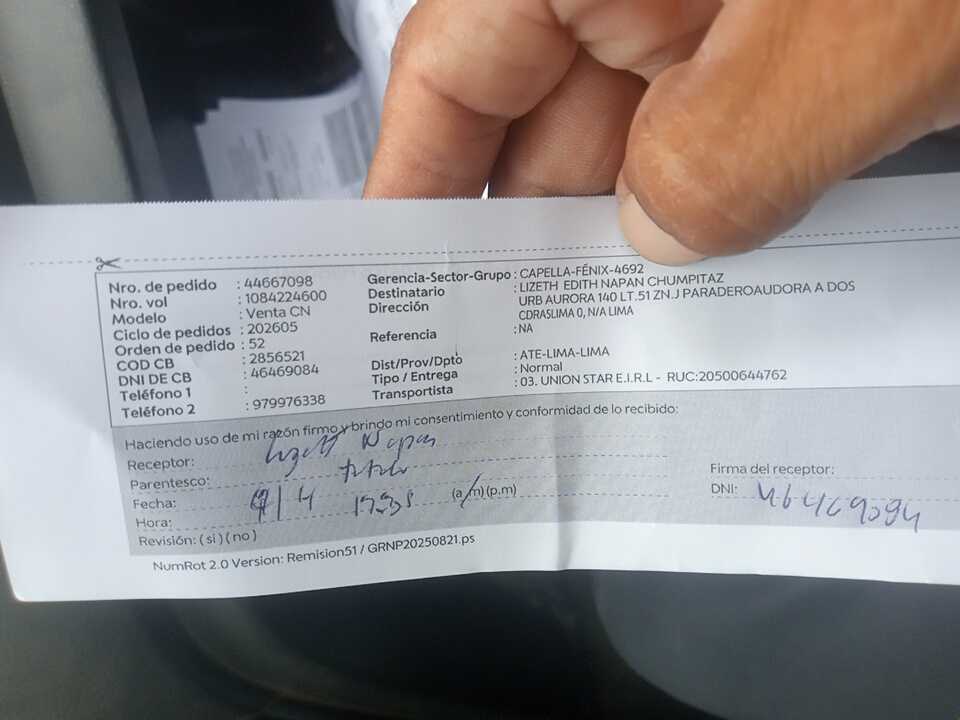 Nro. de pedido : 44667098
Nro. vol : 1084224600
Modelo : Venta CN
Ciclo de pedidos : 202605
Orden de pedido : 52
COD CB : 2856521
DNI DE CB : 46469084
Teléfono 1 :
Teléfono 2 : 979976338
Gerencia-Sector-Grupo : CAPELLA-FÉNIX-4692
Destinatario : LIZETH EDITH NAPAN CHUMPITAZ
Dirección : URB AURORA 140 LT.51 ZN.J PARADEROAUDORA A DOS
CDRASLIMA 0, N/A LIMA
Referencia : NA
Dist/Prov/Dpto : ATE-LIMA-LIMA
Tipo / Entrega : Normal
Transportista : 03. UNION STAR E.I.R.L - RUC:20500644762
Haciendo uso de mi razón firmo y brindo mi consentimiento y conformidad de lo recibido:
Receptor: Lizett Napan
Parentesco:
Fecha:
Hora: (a.m)(p.m)
Revisión: (si) (no)
Firma del receptor:
DNI: 46469084
NumRot 2.0 Version: Remision51 / GRNP20250821.ps